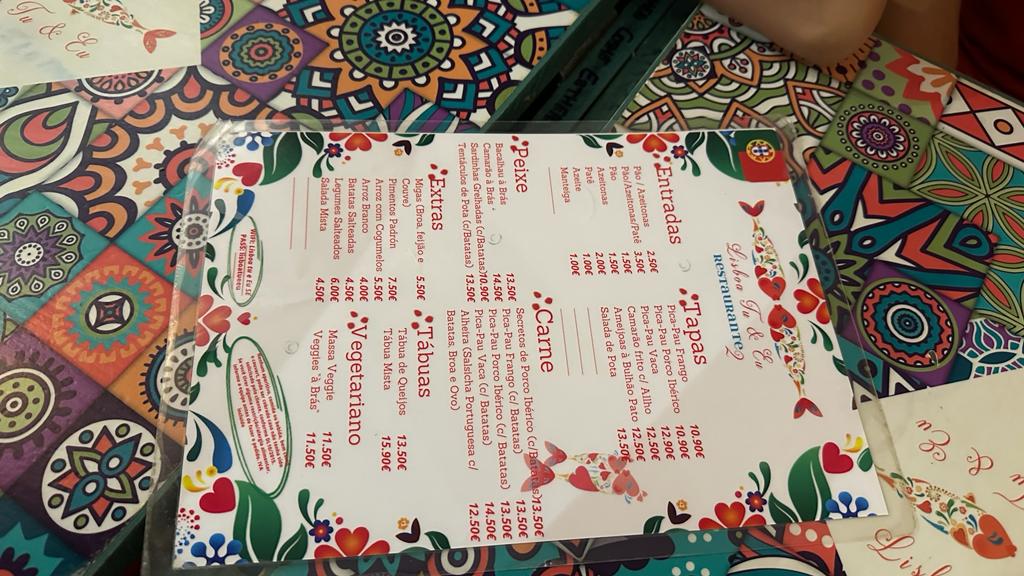 Tu & Eu
Lisboa Tu & Eu
RESTAURANTE 2
Entradas
Pão / Azeitonas 2.50€
Pão/Azeitonas/Patê 3.50€
Pão 1.50€
Azeitonas 2.00€
Patê 1.00€
Azeite 1.00€
Manteiga
Tapas
Pica-Pau Frango 10.90€
Pica-Pau Porco Ibérico 10.90€
Pica-Pau Vaca 12.50€
Camarão frito c/ Alho 12.90€
Ameijoas à Bulhão Pato 13.50€
Salada de Pota
Peixe
Bacalhau à Brás 13.50€
Camarão à Brás 14.50€
Sardinhas Grelhadas (c/Batatas) 10.90€
Tentáculos de Pota (c/Batatas) 13.50€
Carne
Secretos de Porco Ibérico (c/Batatas) 13.50€
Pica-Pau Frango (c/ Batatas) 13.50€
Pica-Pau Porco Ibérico (c/ Batatas) 13.50€
Pica-Pau Vaca (c/ Batatas) 14.50€
Alheira (Salsicha Portuguesa c/
Batatas, Broa e Ovo) 12.50€
Extras
Migas (Broa, feijão e
Couve) 5.50€
Pimentos Padrón 7.50€
Arroz com Cogumelos 5.50€
Arroz Branco 4.00€
Batatas Salteadas 4.50€
Legumes Salteados 6.00€
Salada Mista 4.50€
Tábuas
Tábua de Queijos 13.50€
Tábua Mista 15.90€
Vegetariano
Massa Veggie 11.50€
Veggies "à Brás" 11.50€
WIFI: Lisboa tu e eu 2.4
PASS: lisboatueeu2
& Eu